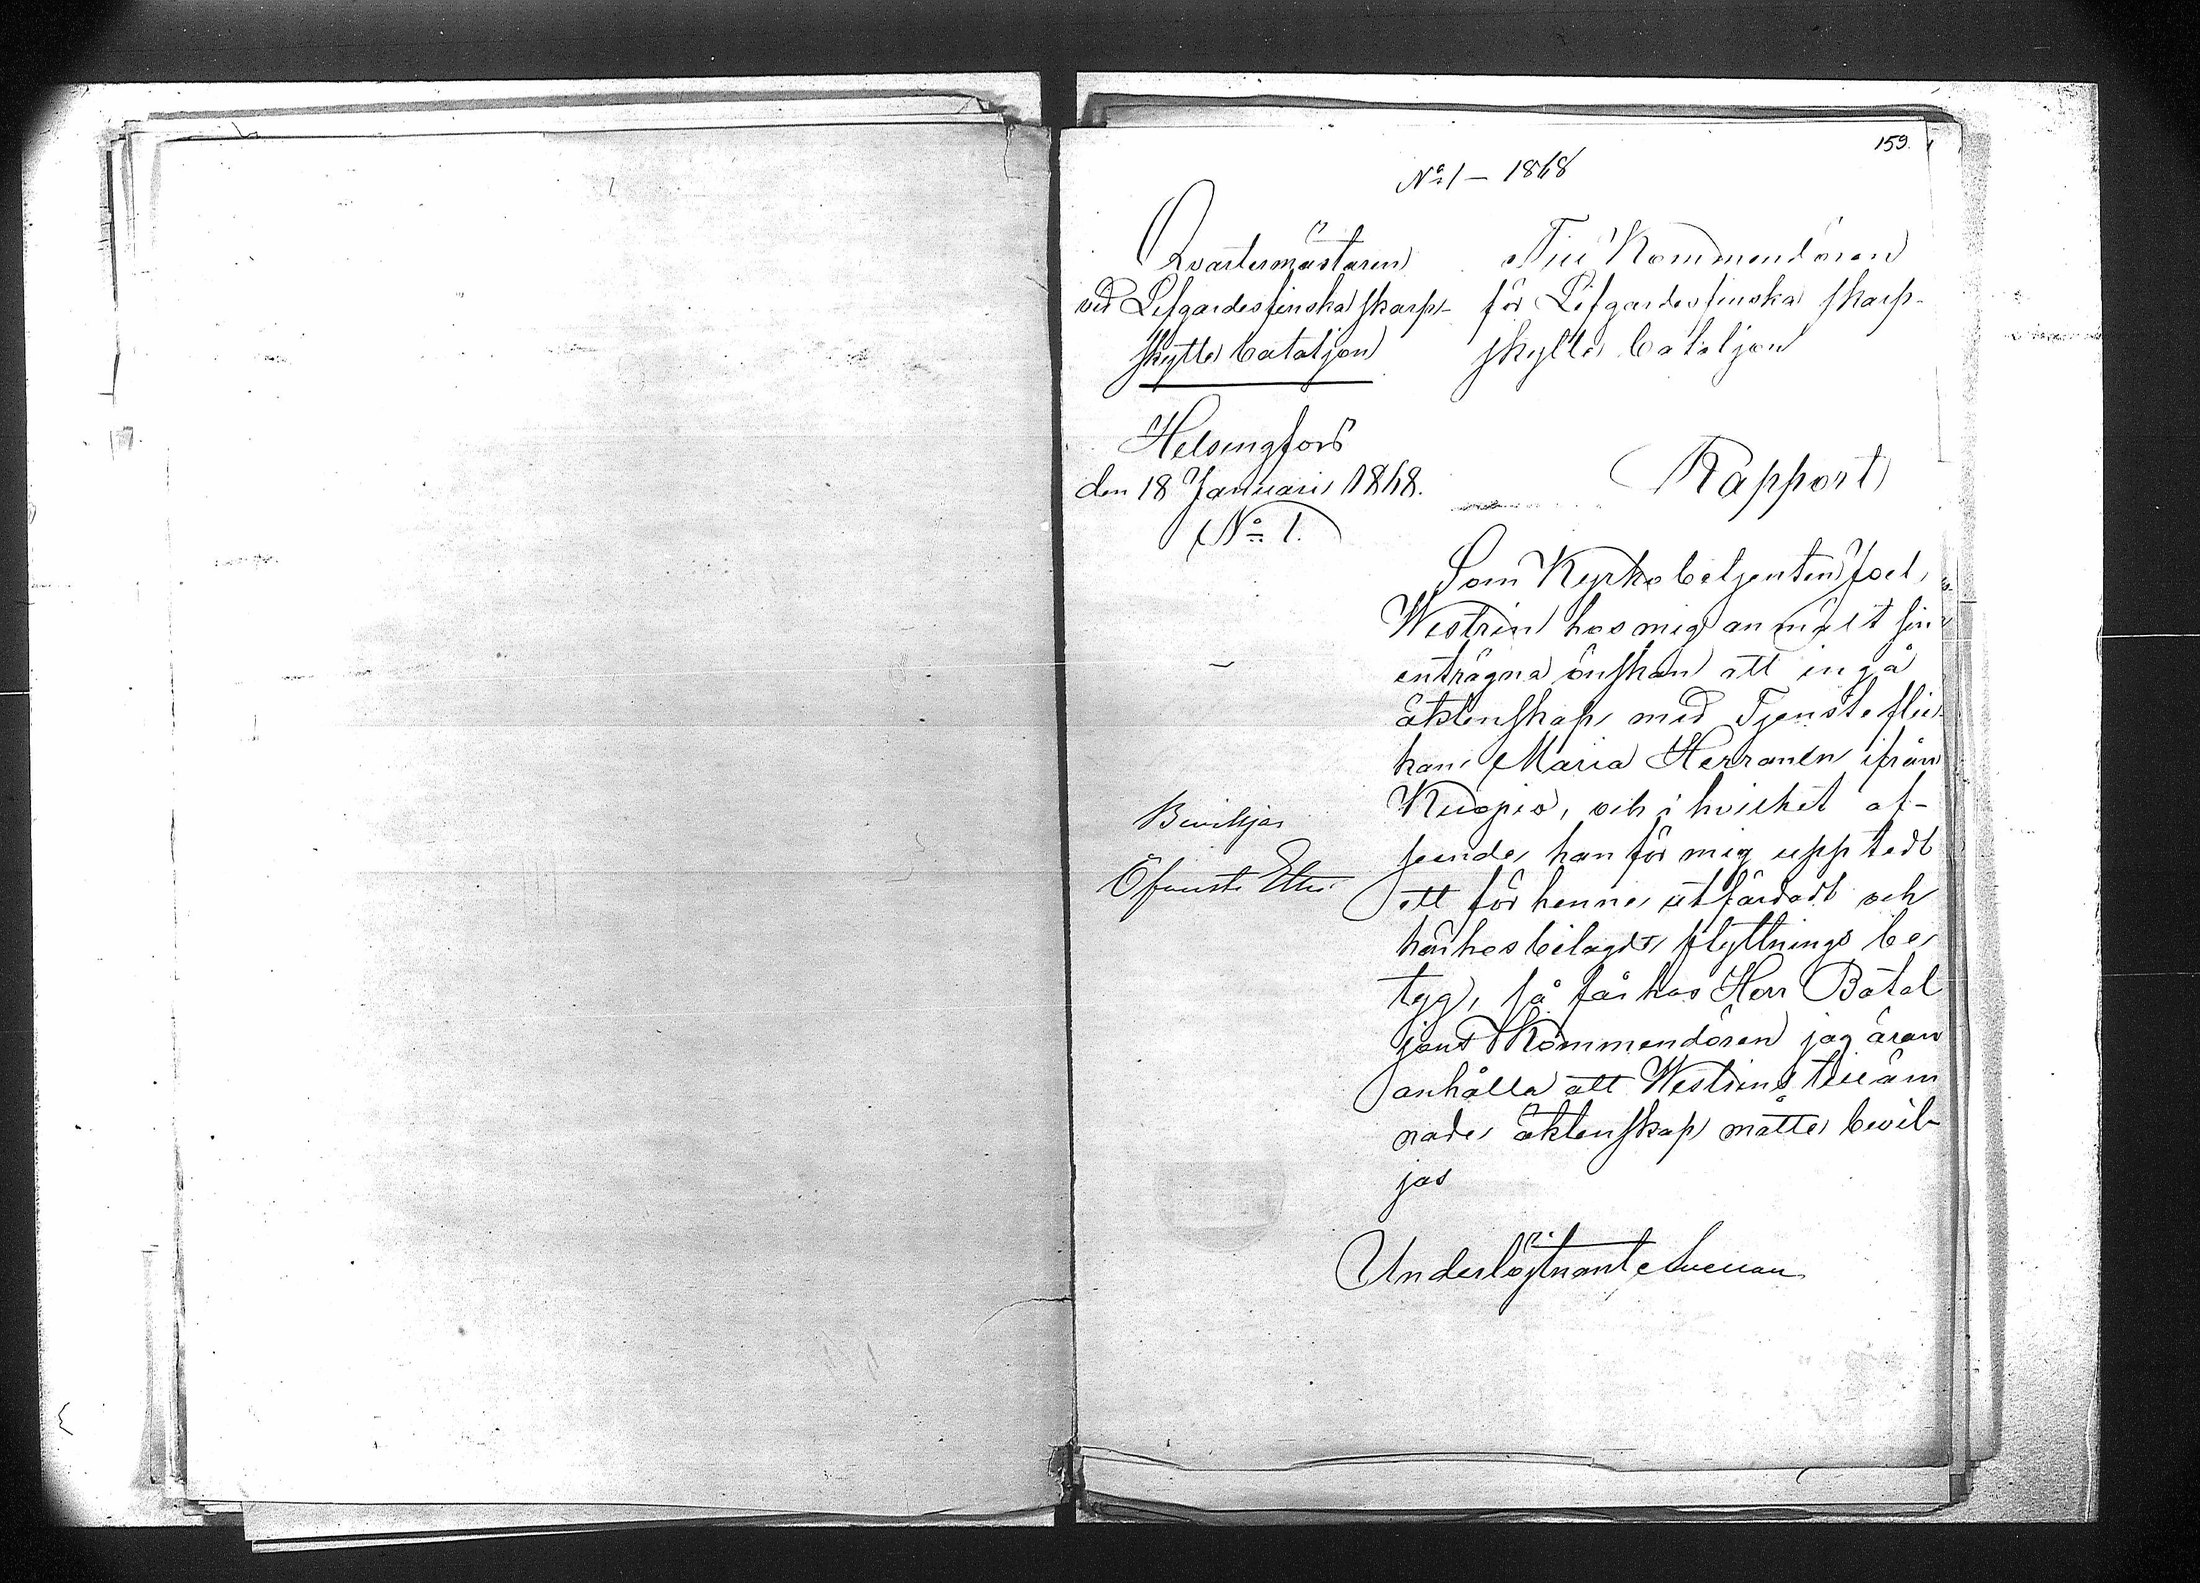 159.
No 1 – 1868
Qvartermästaren
vid Lifgardesfinska skarp-
skytte bataljon
Helsingfors
den 18 Januari 1868.
No 1.
Till Kommendören
för Lifgardesfinska skarp-
skytte bataljon
Rapport
Som Kyrkobetjenten Joel
Westrin hos mig anmält sin
enträgna önskan att ingå
äktenskap med Tjensteflic-
kan Maria Herranen ifrån
Kuopio, och i hvilket af-
seende han för mig upptedt
ett för henne utfärdadt och
härhos bilagdt flyttnings be-
tyg, så får hos Herr Batal
jons Kommendören jag äran
anhålla att Westrins tilläm
nade äktenskap måtte bevil-
jas
Underlöjtnant
Beviljas
Öfverste